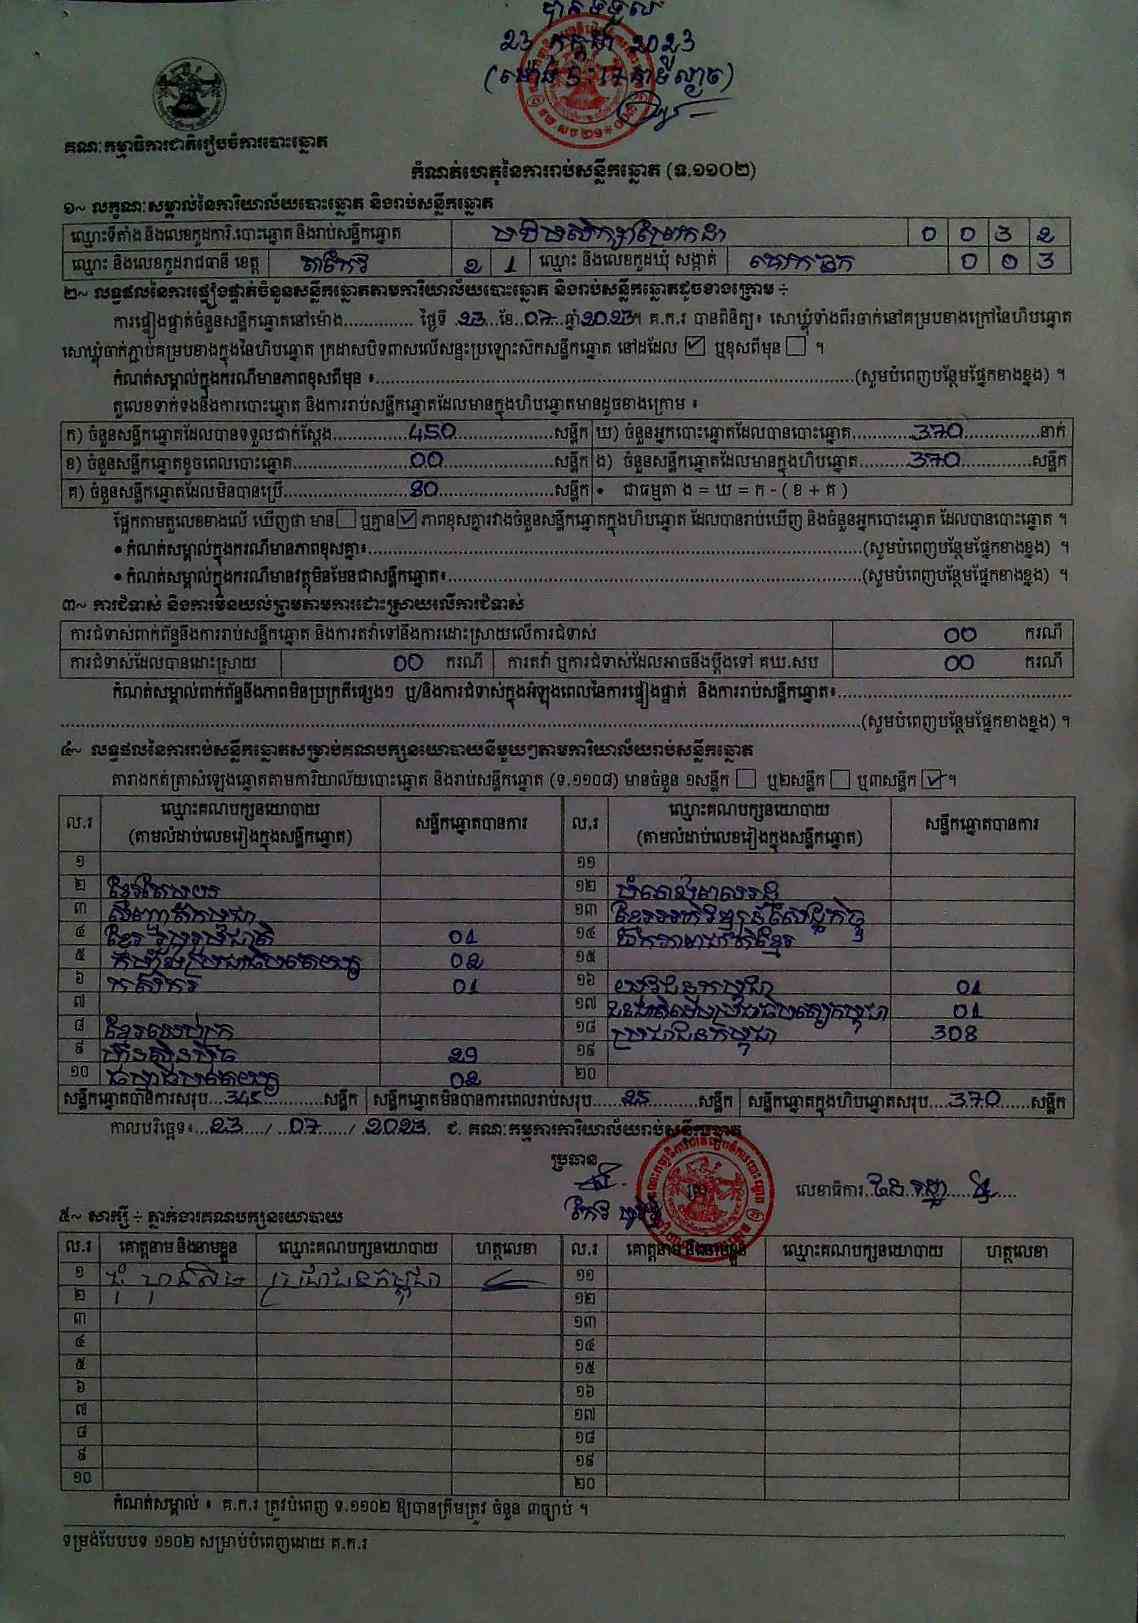 បានទទួល
23 កក្កដា 2023
(ម៉ោង 5:17 នាទីល្ងាច)
គណៈកម្មាធិការជាតិរៀបចំការបោះឆ្នោត
កំណត់ហេតុនៃការរាប់សន្លឹកឆ្នោត (ទ.១១០២)
១~ លក្ខណៈសម្គាល់នៃការិយាល័យបោះឆ្នោត និងរាប់សន្លឹកឆ្នោត
ឈ្មោះទីតាំង និងលេខកូដការិ.បោះឆ្នោត និងរាប់សន្លឹកឆ្នោត 0 0 3 2
ឈ្មោះ និងលេខកូដរាជធានី ខេត្ត តាកែវ 2 1 ឈ្មោះ និងលេខកូដឃុំ សង្កាត់ 0 0 3
២~ លទ្ធផលនៃការផ្ទៀងផ្ទាត់ចំនួនសន្លឹកឆ្នោតតាមការិយាល័យបោះឆ្នោត និងរាប់សន្លឹកឆ្នោតដូចខាងក្រោម ÷
ការផ្ទៀងផ្ទាត់ចំនួនសន្លឹកឆ្នោតនៅម៉ោង.............. ថ្ងៃទី .23...ខែ..07...ឆ្នាំ2023។ គ.ក.រ បានពិនិត្យ៖ សោឃ្លុំទាំងពីរចាក់នៅគម្របខាងក្រៅនៃហិបឆ្នោត
សោឃ្លុំចាក់ភ្ជាប់គម្របខាងក្នុងនៃហិបឆ្នោត ក្រដាសបិទពាសលើសន្ទះប្រឡោះស៊កសន្លឹកឆ្នោត នៅដដែល ☑ ឬខុសពីមុន ☐ ។
កំណត់សម្គាល់ក្នុងករណីមានភាពខុសពីមុន ៖.....(សូមបំពេញបន្ថែមផ្នែកខាងខ្នង) ។
តួលេខទាក់ទងនឹងការបោះឆ្នោត និងការរាប់សន្លឹកឆ្នោតដែលមានក្នុងហិបឆ្នោតមានដូចខាងក្រោម ៖
ក) ចំនួនសន្លឹកឆ្នោតដែលបានទទួលជាក់ស្តែង............450..............សន្លឹក ឃ) ចំនួនអ្នកបោះឆ្នោតដែលបានបោះឆ្នោត............370...............នាក់
ខ) ចំនួនសន្លឹកឆ្នោតខូចពេលបោះឆ្នោត..............00..............សន្លឹក ង) ចំនួនសន្លឹកឆ្នោតដែលមានក្នុងហិបឆ្នោត..........370.............សន្លឹក
គ) ចំនួនសន្លឹកឆ្នោតដែលមិនបានប្រើ..............80..............សន្លឹក • ជាធម្មតា ង = ឃ = ក - ( ខ + គ )
ផ្អែកតាមតួលេខខាងលើ ឃើញថា មាន☐ ឬគ្មាន☑ ភាពខុសគ្នារវាងចំនួនសន្លឹកឆ្នោតក្នុងហិបឆ្នោត ដែលបានរាប់ឃើញ និងចំនួនអ្នកបោះឆ្នោត ដែលបានបោះឆ្នោត ។
• កំណត់សម្គាល់ក្នុងករណីមានភាពខុសគ្នា៖.....(សូមបំពេញបន្ថែមផ្នែកខាងខ្នង) ។
• កំណត់សម្គាល់ក្នុងករណីមានវត្ថុមិនមែនជាសន្លឹកឆ្នោត៖.....(សូមបំពេញបន្ថែមផ្នែកខាងខ្នង) ។
៣~ ការជំទាស់ និងការមិនយល់ព្រមតាមការដោះស្រាយលើការជំទាស់
ការជំទាស់ពាក់ព័ន្ធនឹងការរាប់សន្លឹកឆ្នោត និងការតវ៉ាទៅនឹងការដោះស្រាយលើការជំទាស់ 00 ករណី
ការជំទាស់ដែលបានដោះស្រាយ 00 ករណី ការតវ៉ា ឬការជំទាស់ដែលអាចនឹងប្តឹងទៅ គឃ.សប 00 ករណី
កំណត់សម្គាល់ពាក់ព័ន្ធនឹងភាពមិនប្រក្រតីផ្សេងៗ ឬ/និងការជំទាស់ក្នុងអំឡុងពេលនៃការផ្ទៀងផ្ទាត់ និងការរាប់សន្លឹកឆ្នោត៖.....
.....(សូមបំពេញបន្ថែមផ្នែកខាងខ្នង) ។
៤~ លទ្ធផលនៃការរាប់សន្លឹកឆ្នោតសម្រាប់គណបក្សនយោបាយនីមួយៗតាមការិយាល័យរាប់សន្លឹកឆ្នោត
តារាងកត់ត្រាសំឡេងឆ្នោតតាមការិយាល័យបោះឆ្នោត និងរាប់សន្លឹកឆ្នោត (ទ.១១០៨) មានចំនួន ១សន្លឹក ☐ ឬ២សន្លឹក ☐ ឬ៣សន្លឹក ☑។
ល.រ ឈ្មោះគណបក្សនយោបាយ (តាមលំដាប់លេខរៀងក្នុងសន្លឹកឆ្នោត) សន្លឹកឆ្នោតបានការ ល.រ ឈ្មោះគណបក្សនយោបាយ (តាមលំដាប់លេខរៀងក្នុងសន្លឹកឆ្នោត) សន្លឹកឆ្នោតបានការ
១ ១១
២ ខ្មែរតែមួយ ១២
៣ ១៣ ខ្មែរអភិវឌ្ឍន៍សេដ្ឋកិច្ច
៤ ខ្មែររួបរួមជាតិ 01 ១៤ ឯកភាពជាតិខ្មែរ
៥ កម្លាំងប្រជាធិបតេយ្យ 02 ១៥
៦ កសិករ 01 ១៦ យុវជនកម្ពុជា 01
៧ ១៧ ជនជាតិដើមប្រជាធិបតេយ្យកម្ពុជា 01
៨ ខ្មែរឈប់ក្រ ១៨ ប្រជាជនកម្ពុជា 308
៩ ហ៊្វុនស៊ិនប៉ិច 29 ១៩
១០ 02 ២០
សន្លឹកឆ្នោតបានការសរុប...345...........សន្លឹក សន្លឹកឆ្នោតមិនបានការពេលរាប់សរុប......25..........សន្លឹក សន្លឹកឆ្នោតក្នុងហិបឆ្នោតសរុប....370......សន្លឹក
កាលបរិច្ឆេទ៖...23..../...07....../...2023. ជ. គណៈកម្មការការិយាល័យរាប់សន្លឹកឆ្នោត
ប្រធាន
លេខាធិការ
៥~ សាក្សី ÷ ភ្នាក់ងារគណបក្សនយោបាយ
ល.រ គោត្តនាម និងនាមខ្លួន ឈ្មោះគណបក្សនយោបាយ ហត្ថលេខា ល.រ គោត្តនាម និងនាមខ្លួន ឈ្មោះគណបក្សនយោបាយ ហត្ថលេខា
១ ប្រជាជនកម្ពុជា ១១
២ ១២
៣ ១៣
៤ ១៤
៥ ១៥
៦ ១៦
៧ ១៧
៨ ១៨
៩ ១៩
១០ ២០
កំណត់សម្គាល់ ៖ គ.ក.រ ត្រូវបំពេញ ទ.១១០២ ឱ្យបានត្រឹមត្រូវ ចំនួន ៣ច្បាប់ ។
ទម្រង់បែបបទ ១១០២ សម្រាប់បំពេញដោយ គ.ក.រ